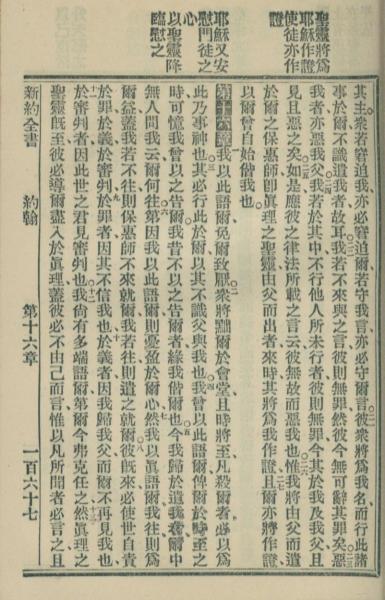 聖靈將爲
耶穌作證
使徒亦作
證
耶穌又安
慰門徒之
心
以聖靈降
臨慰之
其主衆若窘迫我亦必窘迫爾若守我言亦必守爾言彼衆將爲我名而行此諸
事於爾不識遣我者故耳我若不來與之言彼則無罪然彼今無可辭其罪矣惡
我者亦惡我父我若於其中不行他人所未行者彼則無罪今其於我及我父且
見且惡之矣如是應彼之律法所載之言云彼無故而惡我也惟我將由父而遣
於爾之保惠師卽眞理之聖靈由父而出者來時其將爲我作證且爾亦將作證
以爾曾自始偕我也
第十六章我以此語爾免爾致厭衆將黜爾於會堂且時將至凡殺爾者必以爲
此乃事神也其必行此於爾以其不識父與我也我曾以此語爾俾爾於時至之
時可憶我曾以之告爾我昔不以之告爾者緣我偕爾也今我歸於遣我者爾中
無人問我云爾何往第因我以此語爾則憂盈於爾心然我以眞語爾我往則爲
爾益蓋我若不往則保惠師不來就爾我若往則遣之就爾彼旣來必使世自責
於罪於義於審判於罪者因其不信我也於義者因我歸我父而爾不再見我也
於審判者因此世之君見審判也我尙有多端語爾第爾今弗克任之然眞理之
聖靈旣至彼必導爾盡入於眞理蓋彼必不由己而言惟以凡所聞者必言之且
新約全書 約翰 第十六章 一百六十七